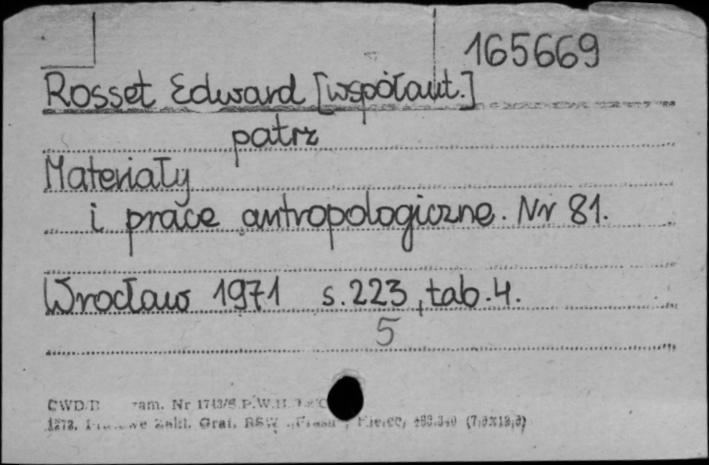 165669
Rosset Edward [współaut.]
patrz
Materiały
i prace antropologiczne. Nr 81.
Wrocław 1971 s. 223, tab. 4.
5
CWD/D ram. Nr 1743/S P.W.H.
1973. Zakł. Graf. RSW „Prasa", Kielce,